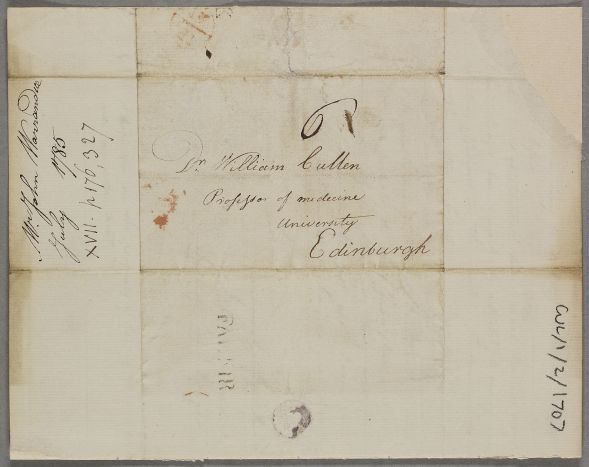 Dr. William Cullen
Professor of medecine
University
Edinburgh
Mr. John
July 1785
XVII. p176, 327
CUL/1/2/1707